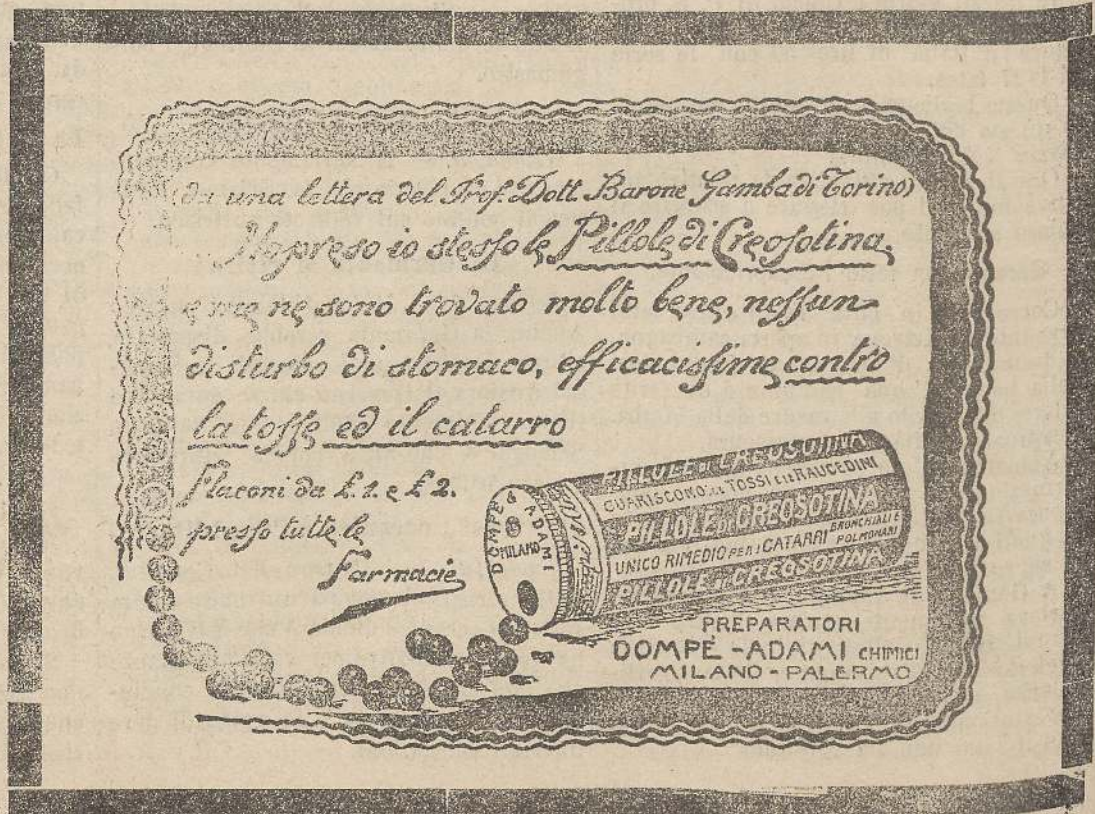 (da una lettera del Prof. Dott. Barone Gamba di Torino)
Ho preso io stesso le Pillole di Creosotina,
e me ne sono trovato molto bene, nessun
disturbo di stomaco, efficacissime contro
la tosse ed il catarro
Flaconi da £. 1. e £ 2.
presso tutte le
Farmacie
DOMPÉ & ADAMI
MILANO
PILLOLE di CREOSOTINA
GUARISCONO LE TOSSI E LE RAUCEDINI
PILLOLE di CREOSOTINA
UNICO RIMEDIO PER I CATARRI BRONCHIALI E POLMONARI
PILLOLE di CREOSOTINA
PREPARATORI
DOMPÉ - ADAMI CHIMICI
MILANO - PALERMO